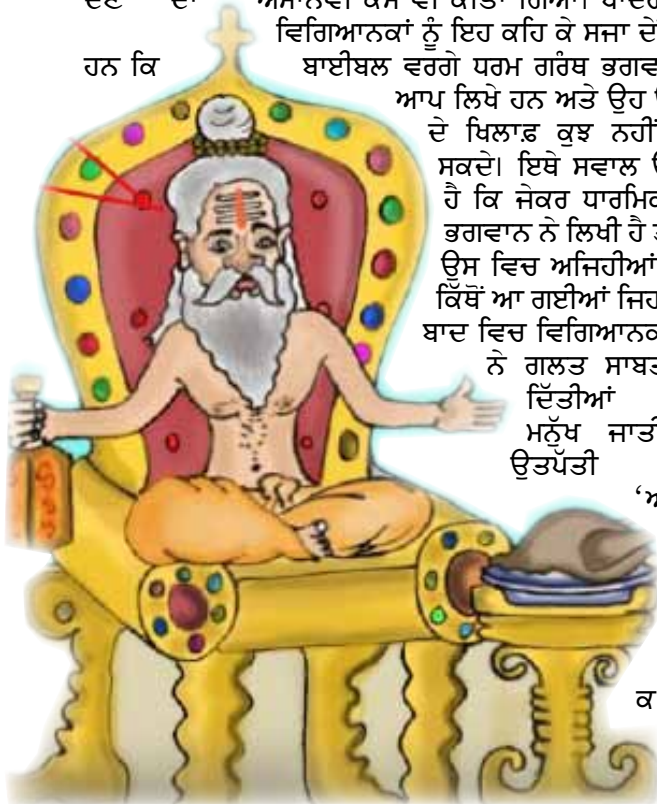 ਵਿਗਿਆਨਕਾਂ ਨੂੰ ਇਹ ਕਹਿ ਕੇ ਸਜਾ ਦੇ
ਹਨ ਕਿ ਬਾਈਬਲ ਵਰਗੇ ਧਰਮ ਗਰੰਥ ਭਗਵ
ਆਪ ਲਿਖੇ ਹਨ ਅਤੇ ਉਹ
ਦੇ ਖਿਲਾਫ਼ ਕੁਝ ਨਹੀਂ
ਸਕਦੇ। ਇਥੇ ਸਵਾਲ
ਹੈ ਕਿ ਜੇਕਰ ਧਾਰਮਿਕ
ਭਗਵਾਨ ਨੇ ਲਿਖੀ ਹੈ
ਉਸ ਵਿਚ ਅਜਿਹੀਆਂ
ਕਿੱਥੋਂ ਆ ਗਈਆਂ ਜਿਹ
ਬਾਦ ਵਿਚ ਵਿਗਿਆਨਕ
ਨੇ ਗਲਤ ਸਾਬਤ
ਦਿੱਤੀਆਂ
ਮਨੁੱਖ ਜਾਤੀ
ਉਤਪੱਤੀ
ਕ